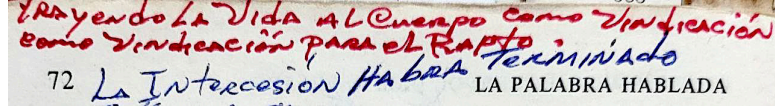 TRAYENDO LA VIDA AL CUERPO COMO VINDICACIÓN
COMO VINDICACIÓN PARA EL RAPTO
LA INTERCESIÓN HABRA TERMINADO
72 LA PALABRA HABLADA